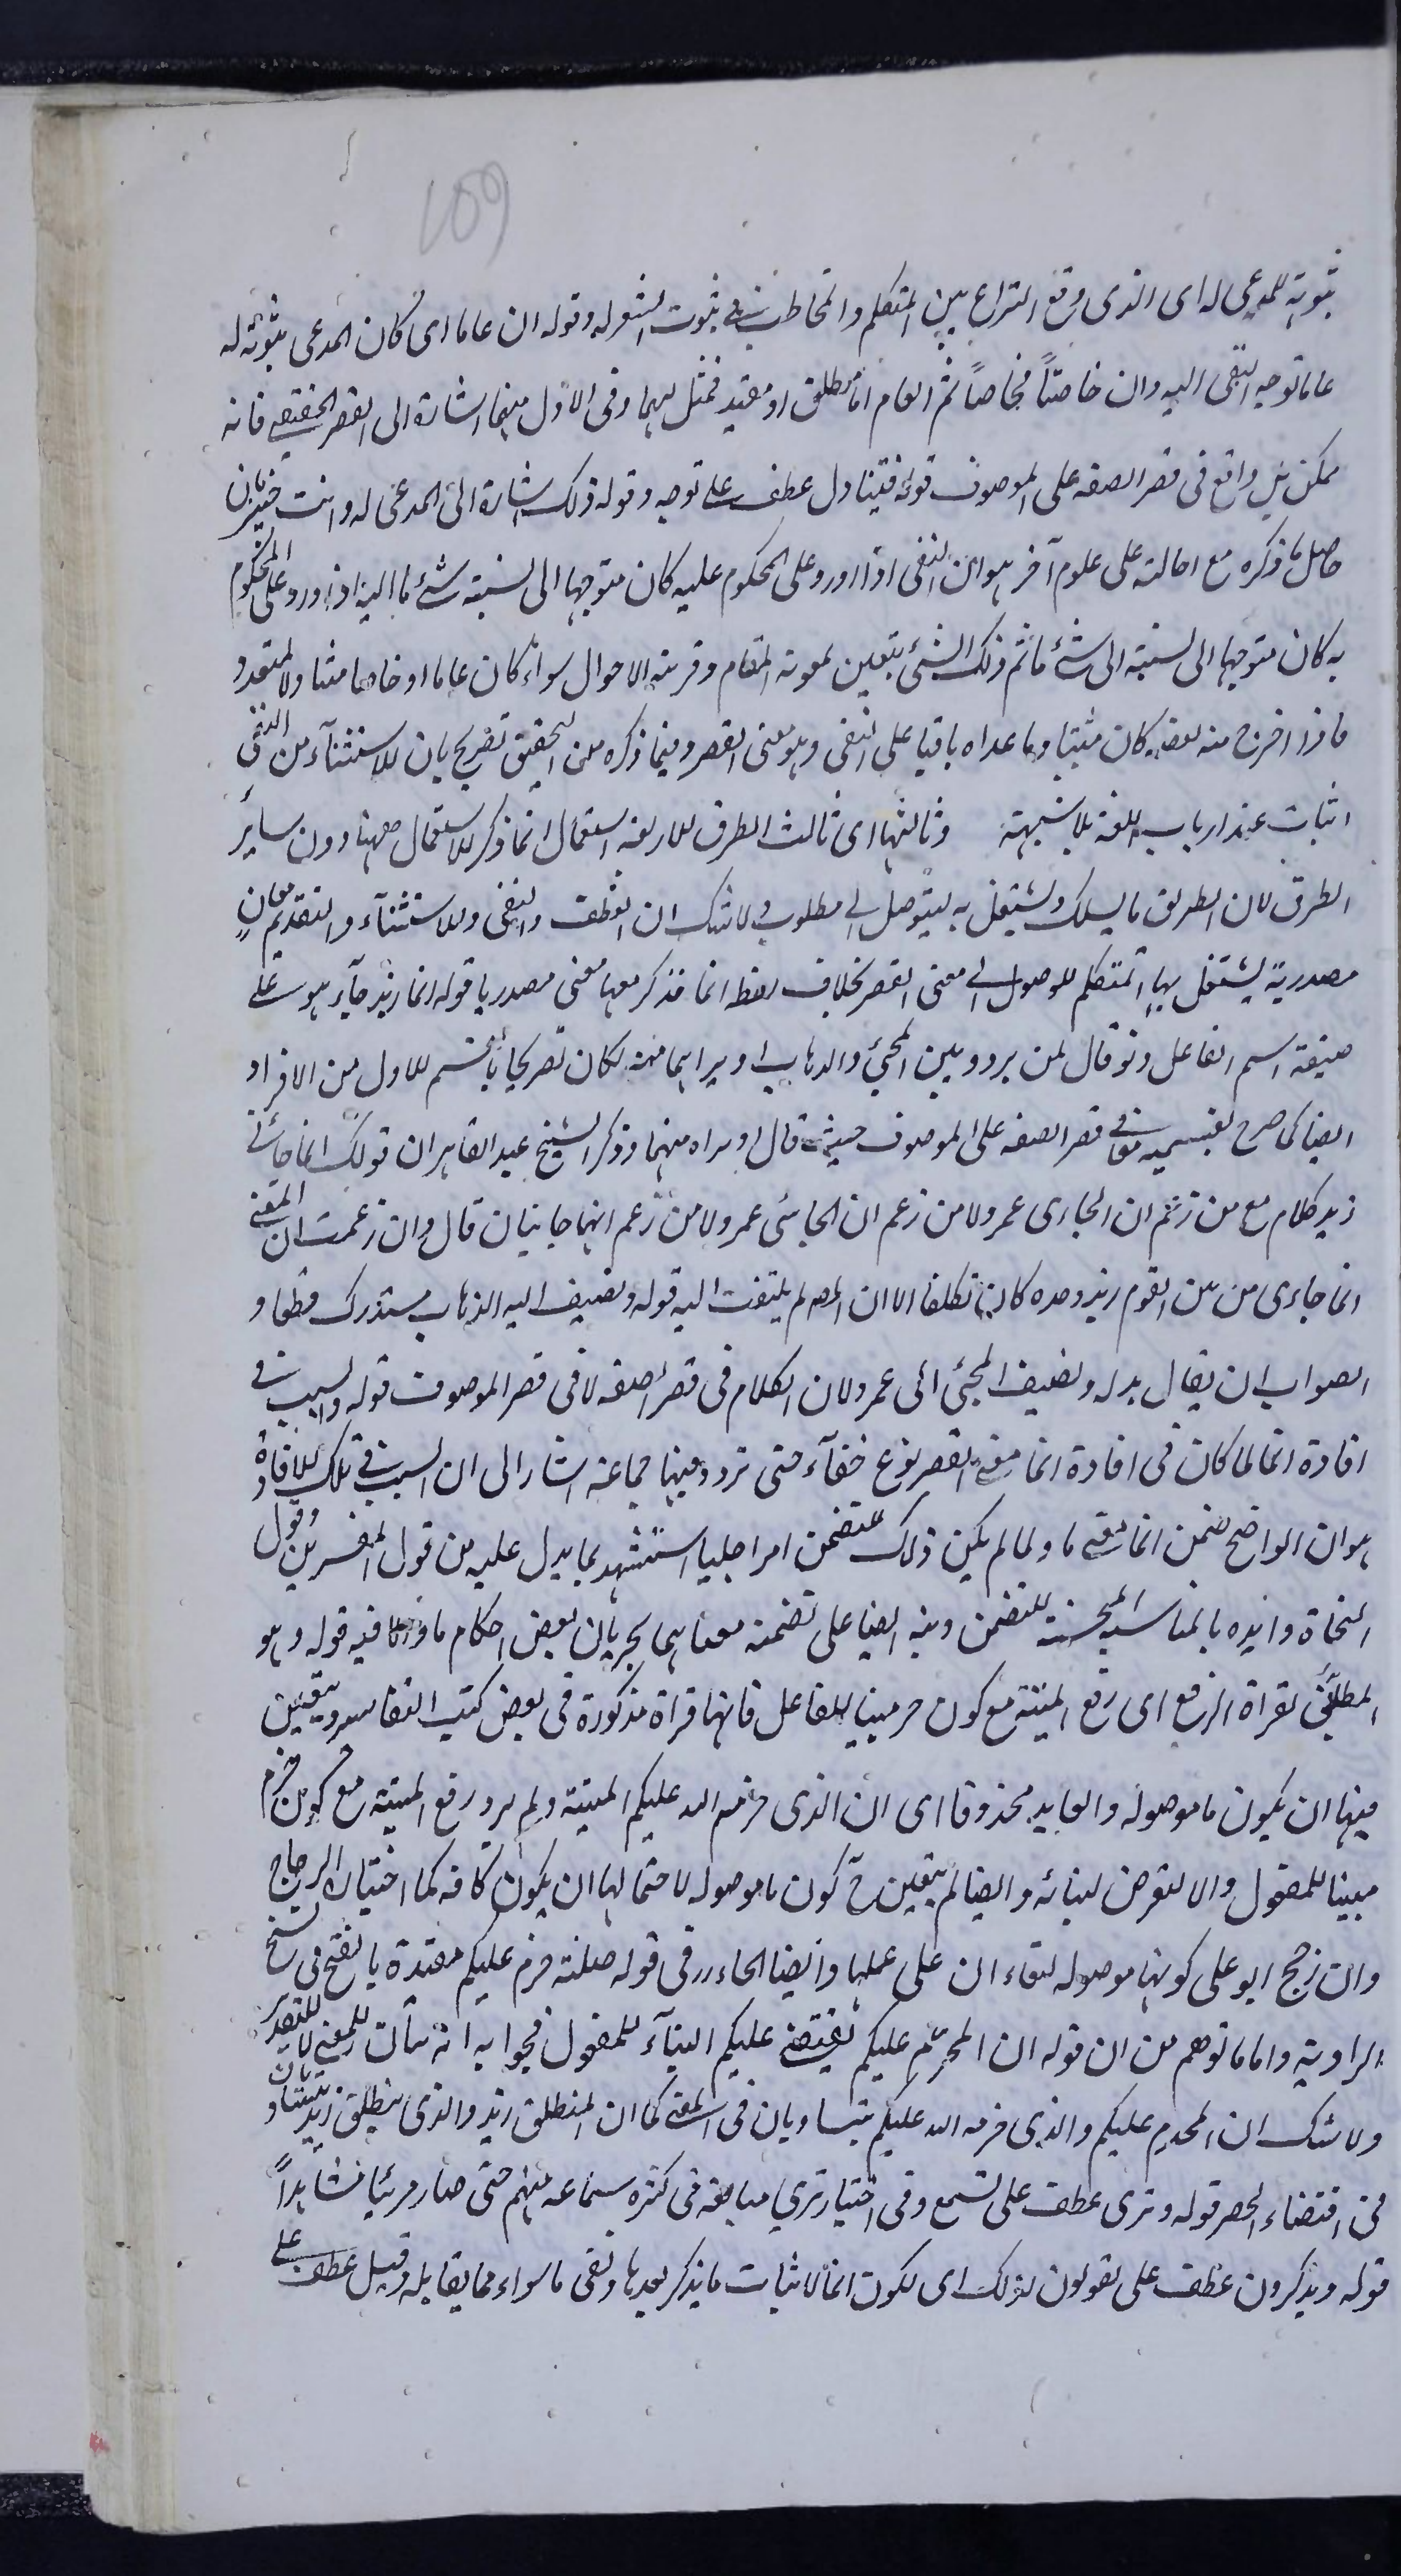 109
ثبوته للمدعى له اى الذى وقع النزاع بين المتكلم والمخاطب فى ثبوت الشعر له وقوله ان عاما اى كان المدعى ثبوته له
عاما توجه النفى اليه وان خاصّاً فخاصاً ثم العام اما مطلق او مقيد فمثل لهما وفى الاول منهما اشارة الى القصر الحقيقى فانه
ممكن بل واقع فى قصر الصفه على الموصوف قوله فيتناول عطف على توجه وقوله ذلك اشارة الى المدعى له وانت خبير بان
حاصل ما ذكره مع احالته على علوم آخر هو ان النفى اذا ورد على المحكوم عليه كان متوجها الى نسبة شئ ما اليه اذا ورد على المحكوم
به كان متوجها الى نسبته الى شئ ما ثم ذلك الشئ يتعين بمعونة المقام وقرينة الاحوال سواء كان عاما او خاصا متناولا لمتعدد
فاذا اخرج منه بعضه كان مثبتا وما عداه باقيا على النفى وهو معنى القصر وفيما ذكره من التحقيق تصريح بان الاستثناء من النفى
اثبات عند ارباب اللغة بلا شبهة وثالثها اى ثالث الطرق الاربعة استعمال انما ذكر الاستعمال ههنا دون ساير
الطرق لان الطريق ما يسلك ويشتغل به ليتوصل الى مطلوب ولا شك ان العطف والنفى والاستثناء والتقديم معان
مصدرية يشتغل بها المتكلم للوصول الى معنى القصر بخلاف لفظ انما فذكر معها معنى مصدريا قوله انما زيد جآء هو على
صيغة اسم الفاعل ولو قال لمن يردد بين المجئ والذهاب او يراهما منه لكان تصريحا بقسم الاول من الافراد
ايضا كما صرح بقسميه معا فى قصر الصفه على الموصوف حيث قال او يراه منهما وذكر الشيخ عبد القاهر ان قولك انما جاءنى
زيد كلام مع من زعم ان الجاءى عمر ولا من زعم انهما جائيان قال وان زعمت ان المعنى
انما جاءى من بين القوم زيد وحده كان تكلفا الا ان المص لم يلتفت اليه قوله ويضيف اليه الذهاب مستدرك قطعا و
الصواب ان يقال بدله ويضيف المجئ الى عمر ولان الكلام فى قصر الصفه لا فى قصر الموصوف قوله والسبب فى
افادة انما لما كان فى افادة انما معنى القصر نوع خفآء حتى تردد فيها جماعة اشار الى ان السبب فى تلك الافادة
هو ان الواضح ضمن انما معنى ما والا ولما لم يكن ذلك التضمن امرا جليا استشهد بما يدل عليه من قول المفسرين وقول
النحاة وايده بالمناسبة المحسنة للتضمن ونبه ايضا على تضمنه معناهما بجريان بعض احكام ما والا فيه قوله وهو
المطابق لقراة الرفع اى رفع الميتة مع كون حرم مبنيا للفاعل فانها قراة مذكورة فى بعض كتب التفاسير ويتعين
فيها ان يكون ما موصولة والعايد محذوفا اى ان الذى حرمه الله عليكم الميتة ولم يرد رفع الميتة مع كون حرم
مبنيا للمفعول والا لتعرض لبنائه وايضا لم يتعين ح كون ما موصولة لاحتمالها ان يكون كافة كما اختياره الزجاج
وان رجح ابو على كونها موصولة لبقاء ان على عملها وايضا الحاء فى قوله صلته حرم عليكم مقيدة بالفتح فى نسخ
الراوية واما ما توهم من ان قوله ان المحرّم عليكم يقتضى البناء للمفعول فجوابه انه بيان للمعنى لا للتقدير
ولا شك ان المحرم عليكم والذى حرمه الله عليكم يتساويان فى المعنى كما ان المنطلق زيد والذى ينطلق زيد متساويان
فى اقتضاء الحصر قوله وترى عطف على تسمع وفى اختيار ترى مبالغة فى كثرة سماعه منهم حتى صار مرئيا مشاهداً
قوله ويذكرون عطف على يقولون لذلك اى لكون انما لاثبات ما يذكر بعدها ونفى ما سواه مما يقابله وقيل عطف على